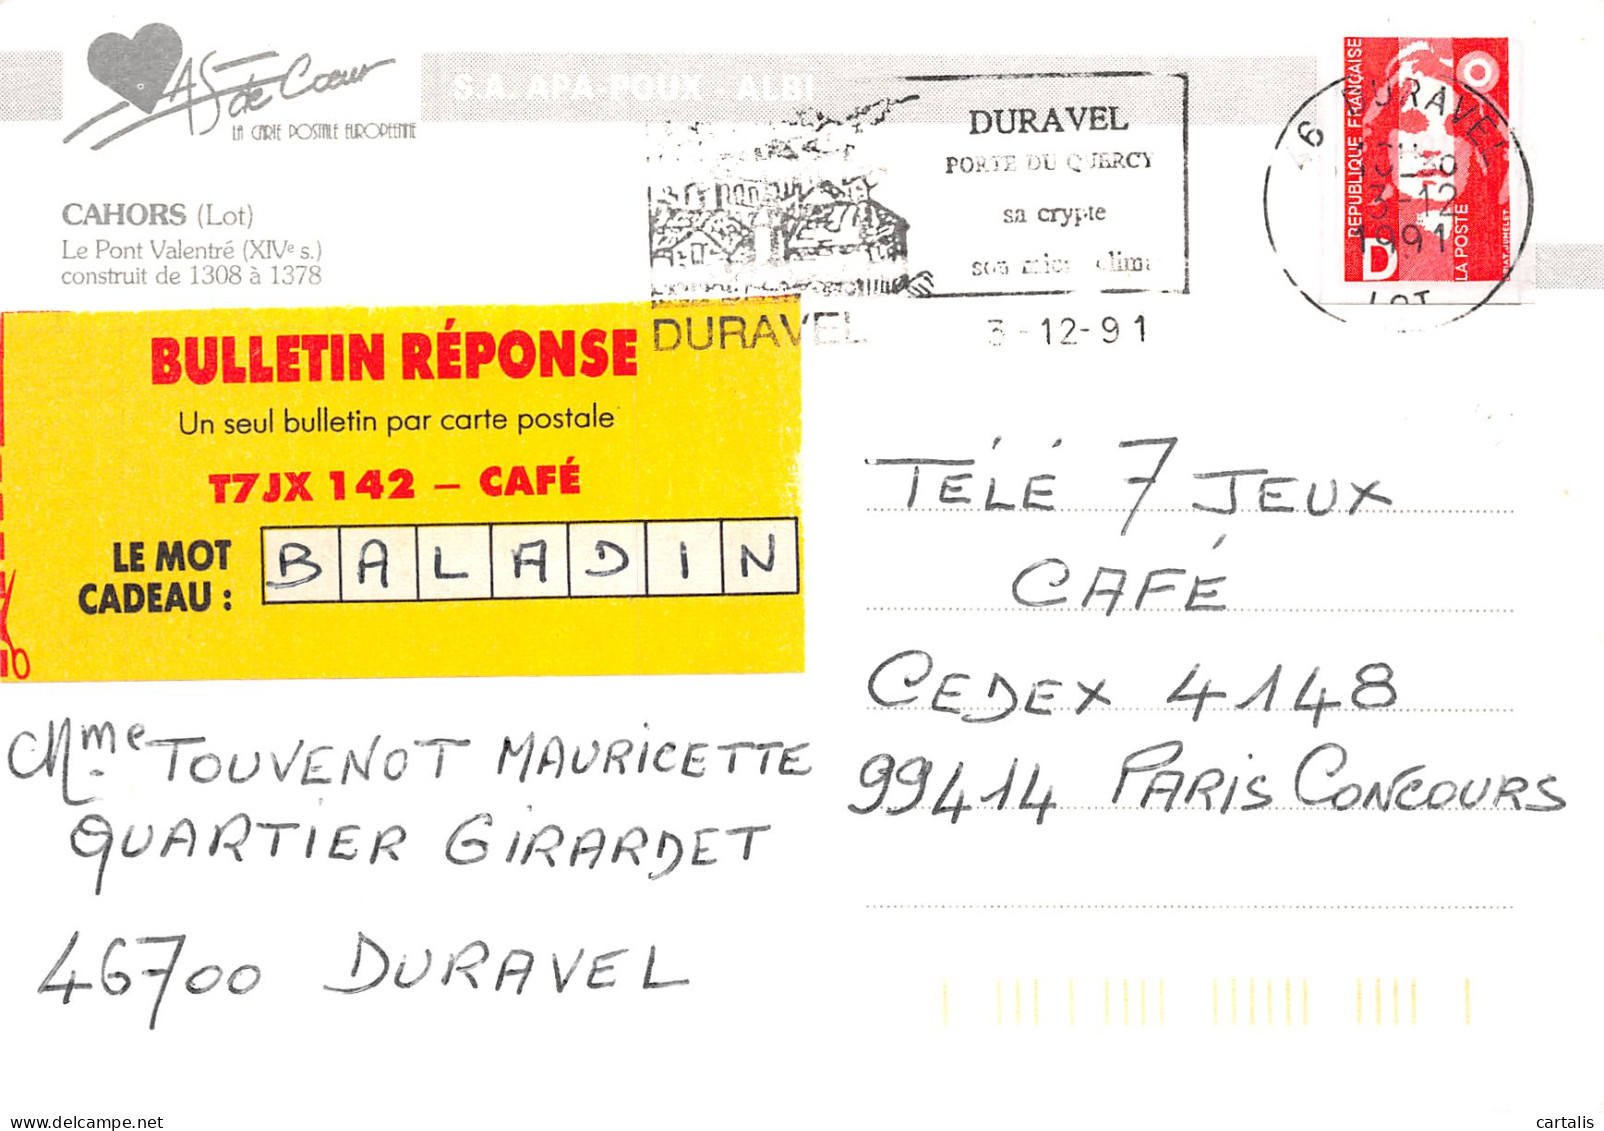 AS de Cœur
LA CARTE POSTALE EUROPEENNE
S.A. APA-POUX - ALBI
CAHORS (Lot)
Le Pont Valentré (XIVe s.)
construit de 1308 à 1378
DURAVEL
PORTE DU QUERCY
sa crypte
son
DURAVEL
3-12-91
46 DURAVEL
3-12
1991
LOT
RÉPUBLIQUE FRANÇAISE
D
LA POSTE
BULLETIN RÉPONSE
Un seul bulletin par carte postale
T7JX 142 – CAFÉ
LE MOT
CADEAU :
BALADIN
TÉLÉ 7 JEUX
CAFÉ
CEDEX 4148
99414 PARIS CONCOURS
Mme TOUVENOT MAURICETTE
QUARTIER GIRARDET
46700 DURAVEL
cartalis